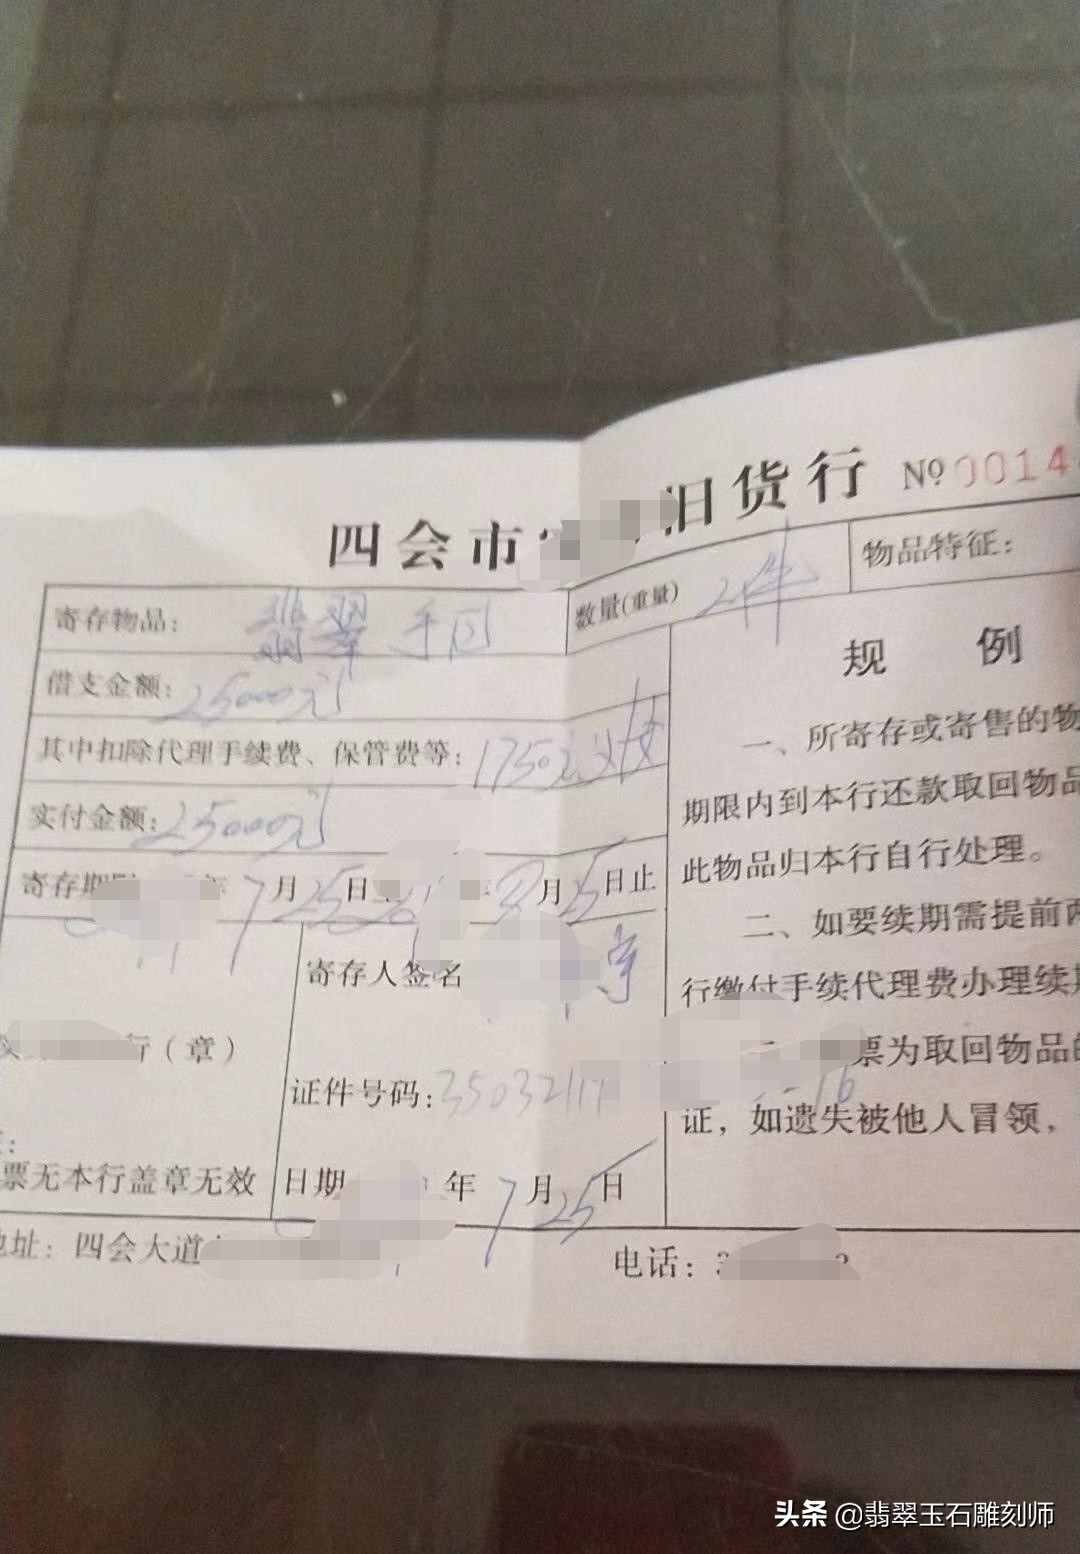 四会市 旧货行 № 0014
寄存物品: 翡翠手回 数量(重量) 2件 物品特征:
借支金额: 25000元
其中扣除代理手续费、保管费等: 1750元
实付金额: 25000元
寄存期 年 7月25日 月25日止
寄存人签名
行（章）
证件号码: 3503211
票无本行盖章无效
日期 年 7月25日
规 例
一、所寄存或寄售的物
期限内到本行还款取回物品
此物品归本行自行处理。
二、如要续期需提前两
行缴付手续代理费办理续期
票为取回物品的
证，如遗失被他人冒领，
地址: 四会大道
电话:
头条 @翡翠玉石雕刻师